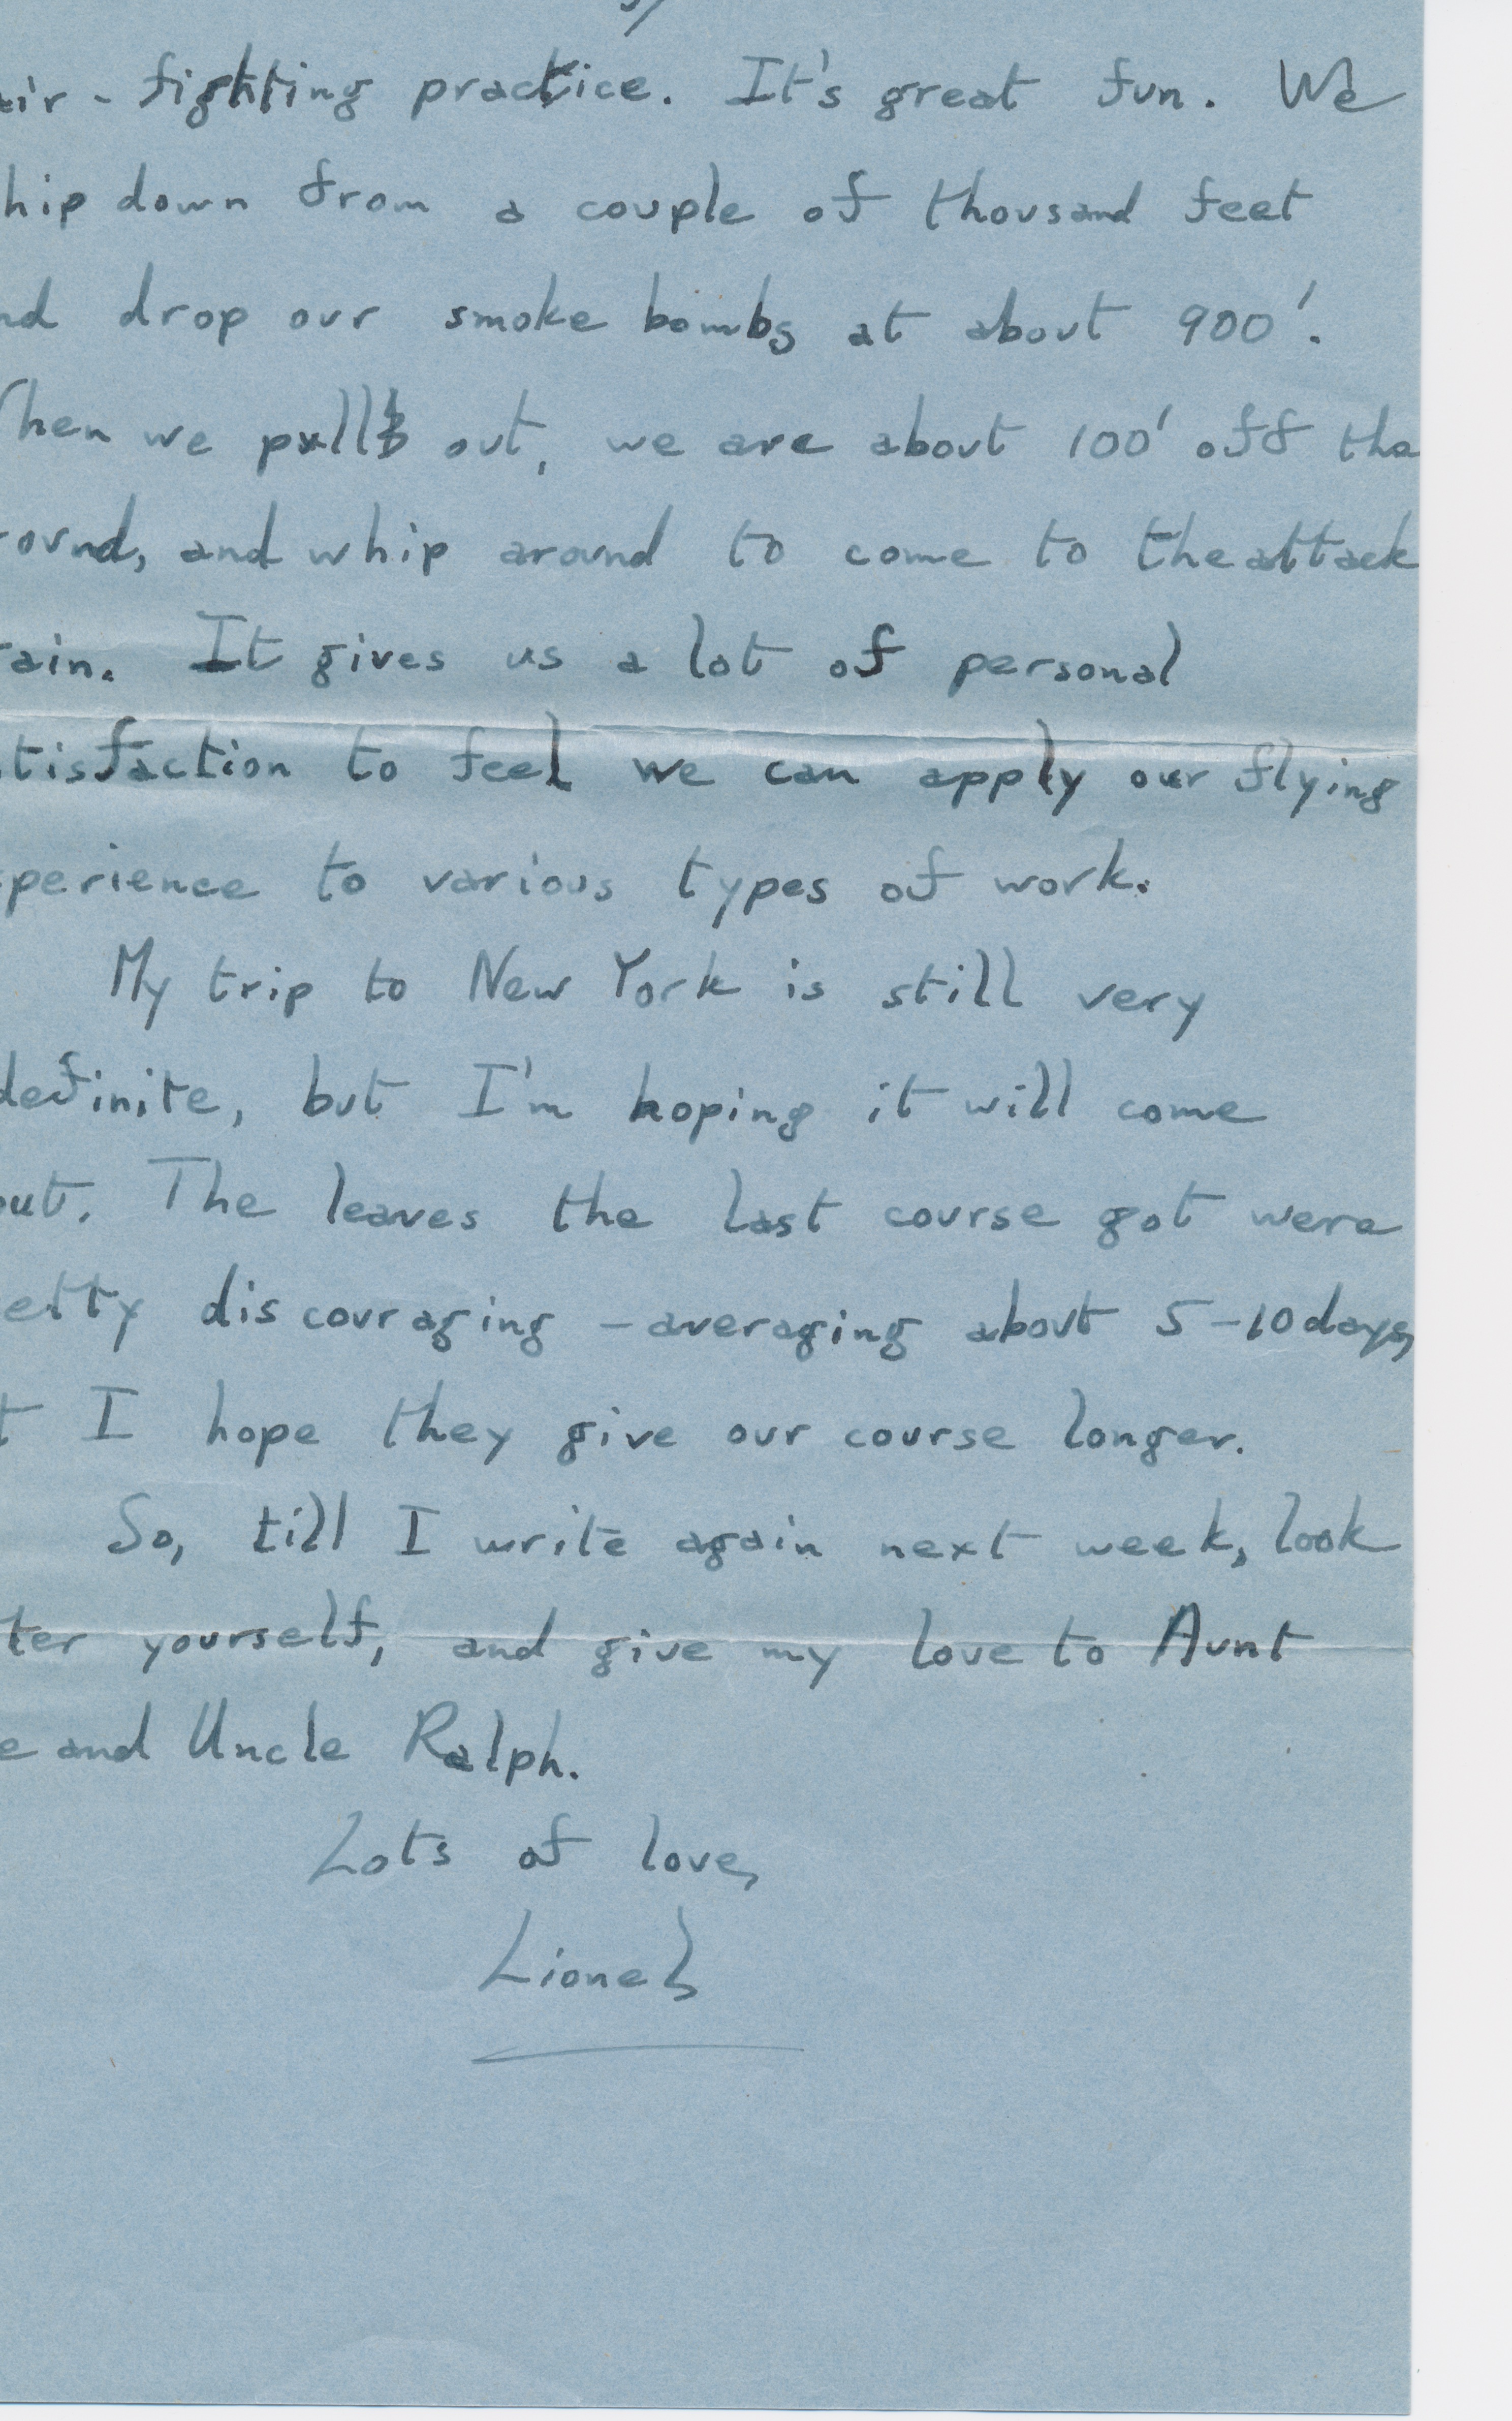 air - fighting practice. It's great fun. We
hip down from a couple of thousand feet
nd drop our smoke bombs at about 900'.
When we pull out, we are about 100' off the
round, and whip around to come to the attack
ain. It gives us a lot of personal
tisfaction to feel we can apply our flying
perience to various types of work.
My trip to New York is still very
definite, but I'm hoping it will come
out. The leaves the last course got were
etty discouraging - averaging about 5-10 days,
t I hope they give our course longer.
So, till I write again next week, look
ter yourself, and give my love to Aunt
e and Uncle Ralph.
Lots of love,
Lionel